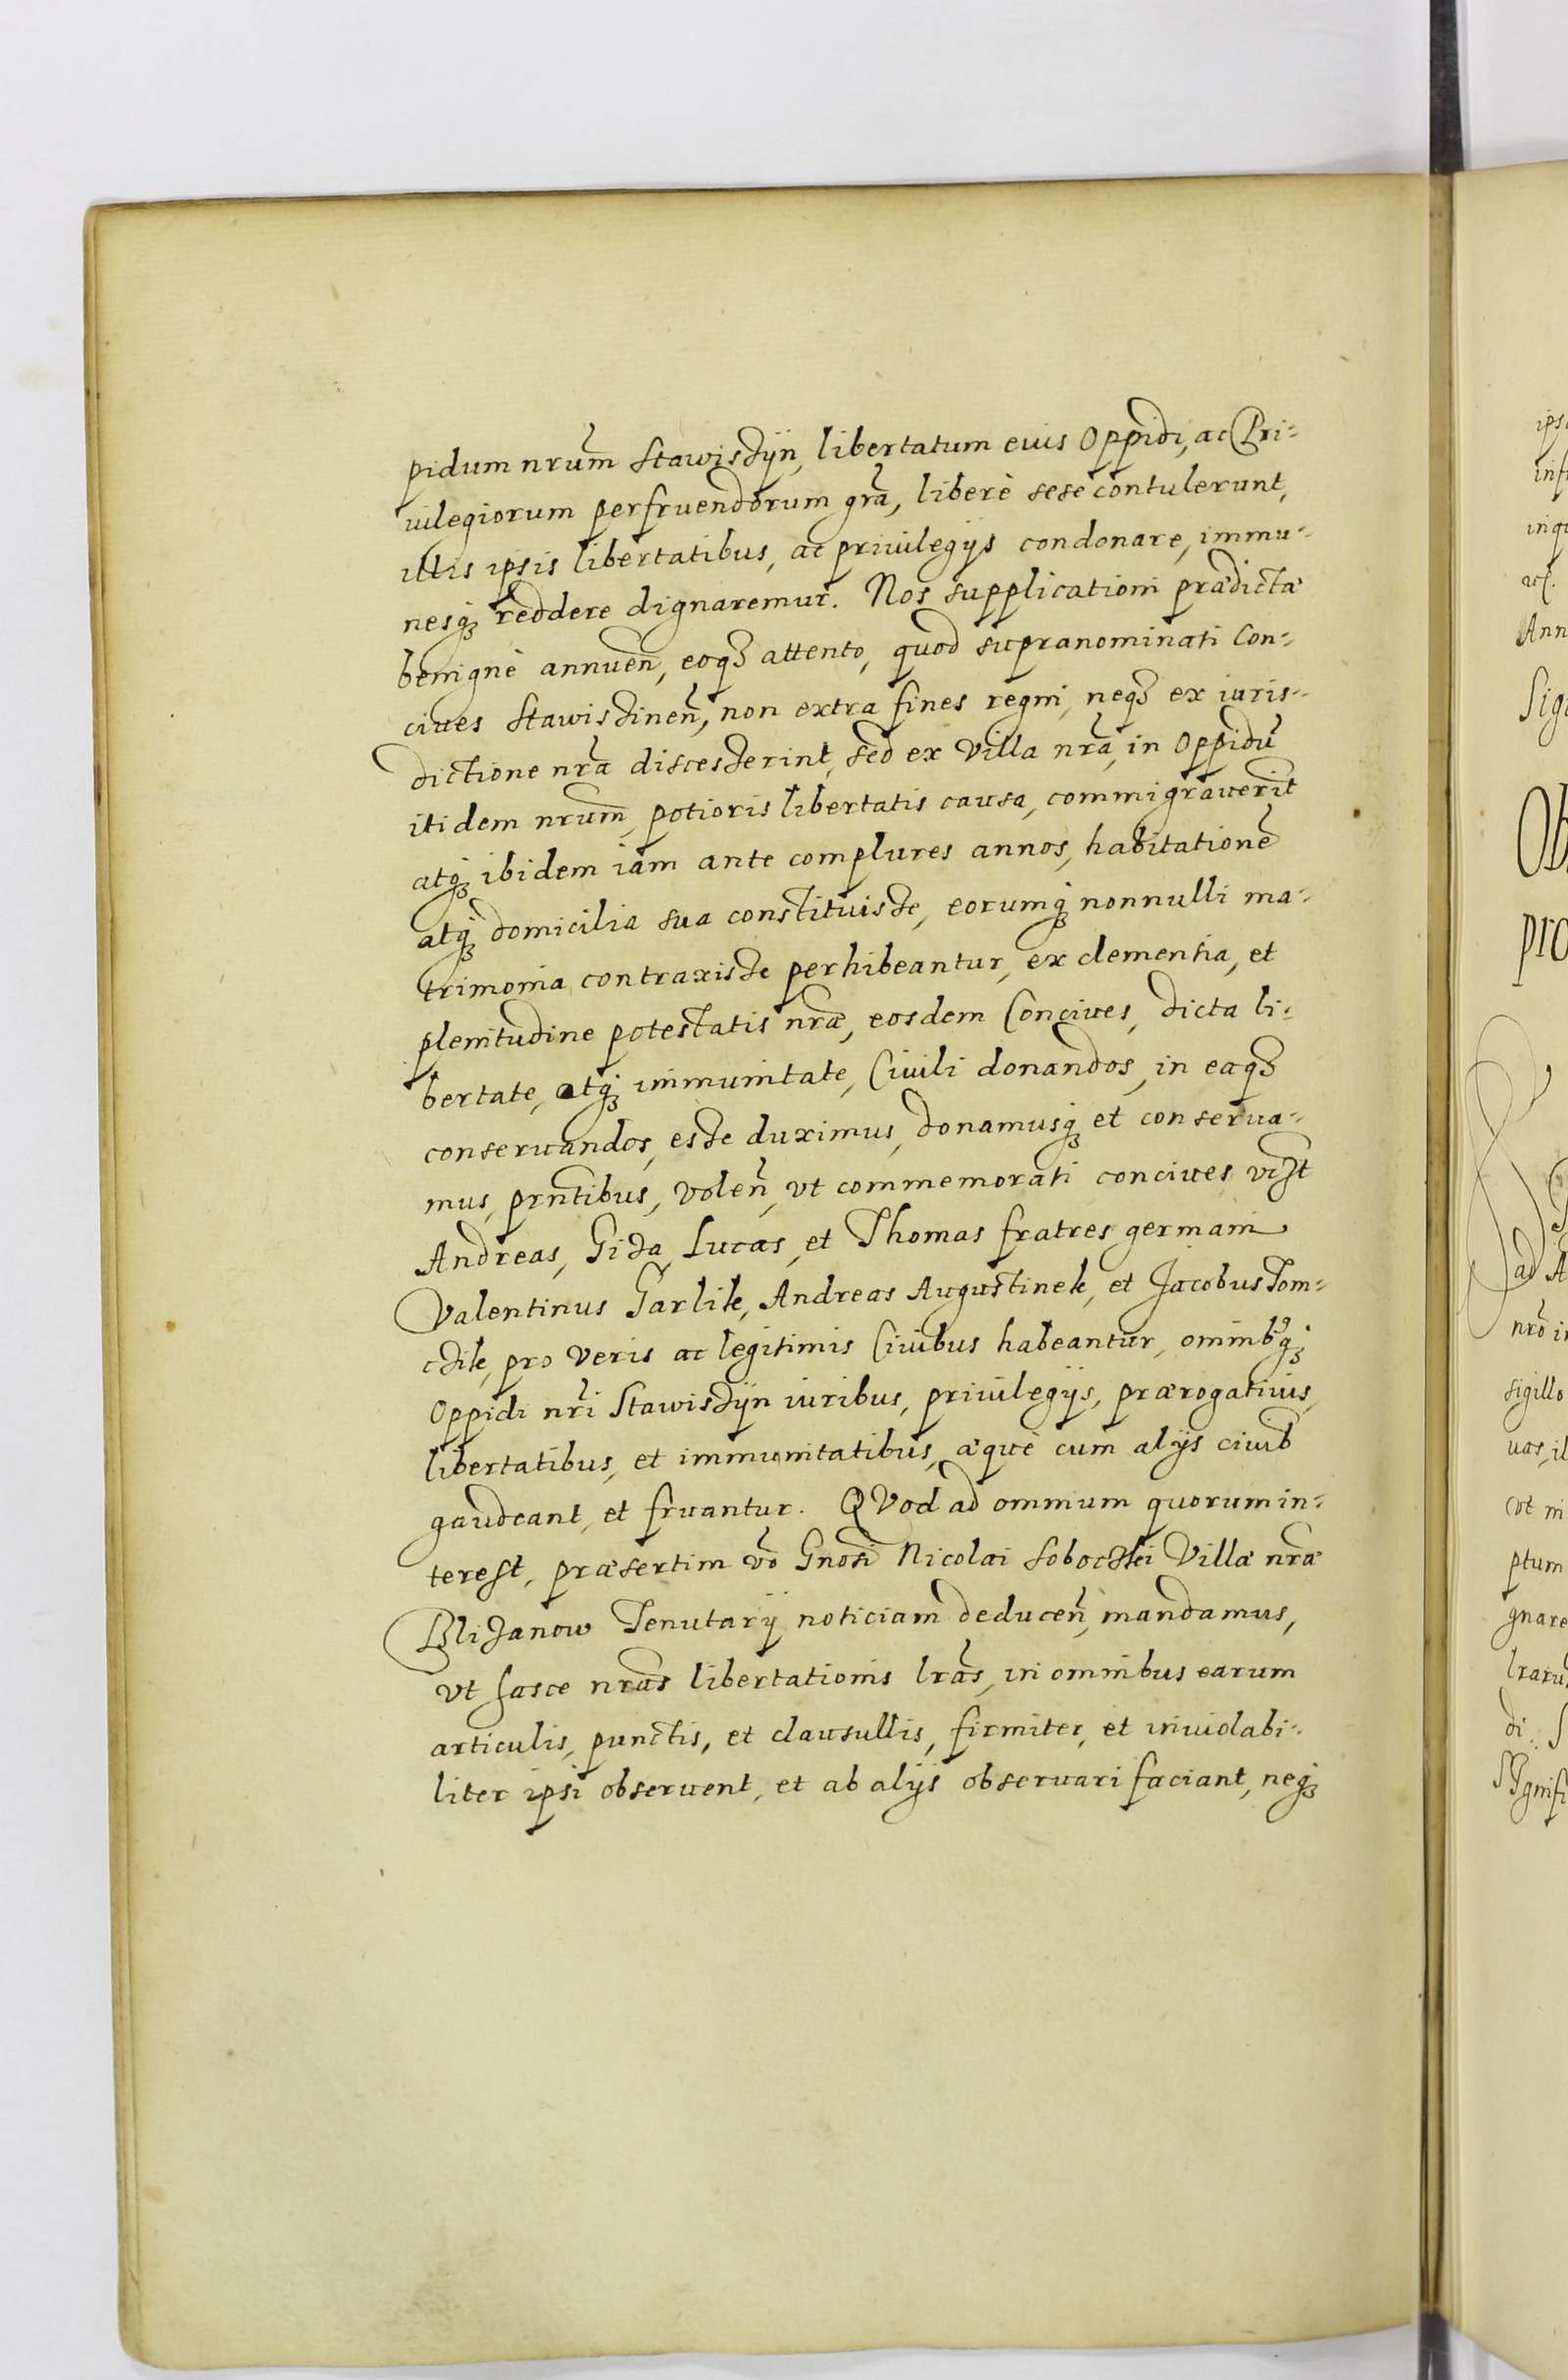 pidum nrũm Stawissÿn, libertatum euis Oppidi, ac Pri-
uilegiorum perfruendorum grã, liberè sese contulerunt,
illis ipsis libertatibus, ac priuilegijs condonare, immu-
nesq₃ reddere dignaremur. Nos supplicationi prædictæ
benignè annuen̄, eoq₃ attento, quod supranominati Con-
ciues Stawissinen̄, non extra fines regni, neq₃ ex iuris-
dictione nrã discesserint, sed ex Villa nrã, in Oppidũ
itidem nrũm, potioris libertatis causa, commigrauerĩt
atq₃ ibidem iam ante complures annos, habitationẽ
atq₃ domicilia sua constituisse, eorumq₃ nonnulli ma-
trimonia contraxisse perhibeantur, ex clementia, et
plenitudine potestatis nræ̃, eosdem Conciues, dicta li-
bertate, atq₃ immunitate, Ciuili donandos, in eaq₃
conseruandos, esse duximus, donamusq₃ et conserua-
mus, prñtibus, volen̄, vt commemorati conciues vɀt
Andreas, Giza, Lucas, et Thomas fratres germani
Valentinus Garlik, Andreas Augustinek, et Jacobus Tom-
czik, pro veris ac legitimis Ciuibus habeantur, omnibꝰq₃
Oppidi nrĩ Stawissÿn iuribus, priuilegijs, prærogatiuis,
libertatibus, et immunitatibus, æquè cum alijs ciuib
gaudeant, et fruantur. QVod ad omnium quorum in-
terest, præsertim võ Gnosĩ Nicolai Sobocski Villæ nræ̃
Blizanow Tenutarij noticiam deducen̄, mandamus,
vt hasce nrãs libertationis lrãs, in omnibus earum
articulis, punctis, et clausullis, firmiter, et inuiolabi-
liter ipsi obseruent, et ab alijs obseruari faciant, neq₃